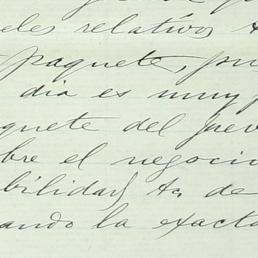 eles relativos
paquete, pu
dia es muy p
quete del juev
bre el negocio
bilidad, &a. de
ando la exacta